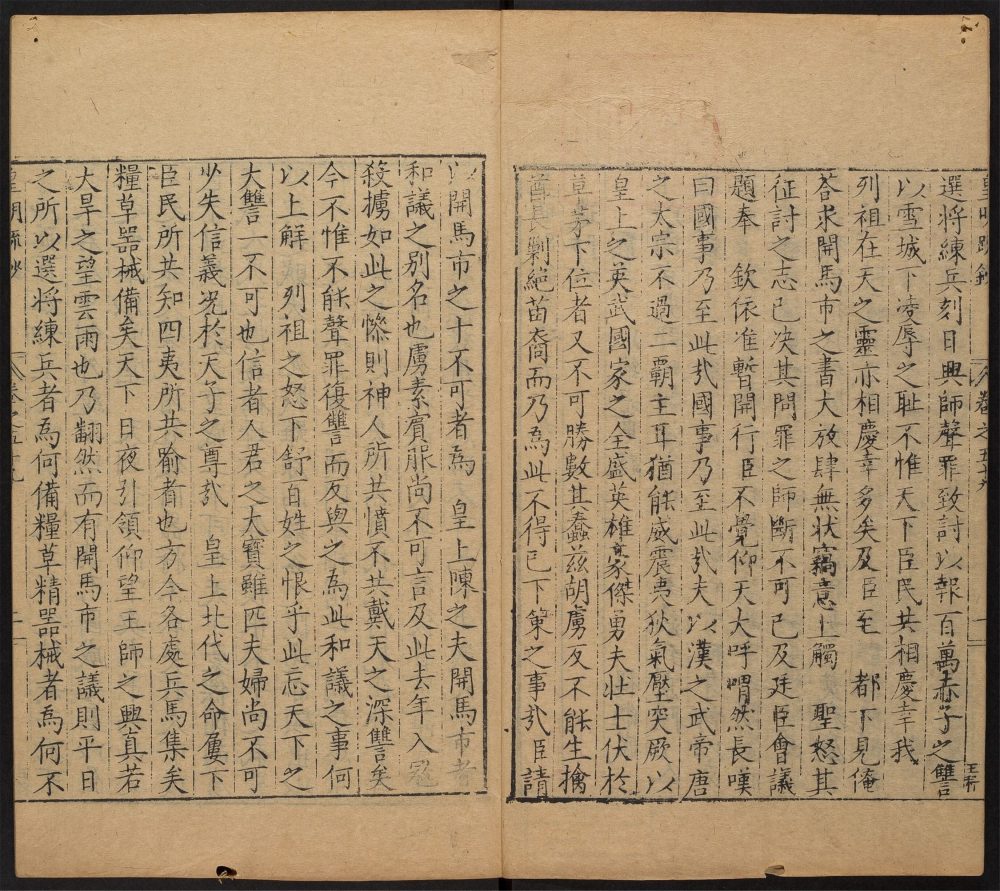 皇明疏鈔
卷之五十九
選將練兵刻日興師聲罪致討以報百萬赤子之讐
以雪城下凌辱之耻不惟天下臣民共相慶幸我
列祖在天之靈亦相慶幸多矣及臣至 都下見俺
荅求開馬市之書大放肆無狀竊意上觸 聖怒其
征討之志已决其問罪之師斷不可已及廷臣會議
題奉 欽依准暫開行臣不覺仰天大呼喟然長嘆
曰國事乃至此㢤國事乃至此㢤夫以漢之武帝唐
之太宗不過二覇主耳猶能威震夷狄氣壓突厥以
皇上之英武國家之全盛英雄豪傑勇夫壯士伏於
草茅下位者又不可勝數其蠢兹胡虜反不能生擒
酋長剿絶苗裔而乃為此不得已下策之事㢤臣請
以開馬市之十不可者為 皇上陳之夫開馬市者
和議之别名也虜素賓服尚不可言及此去年入寇
殺擄如此之慘則神人所共憤不共戴天之深讐矣
今不惟不能聲罪復讐而反與之為此和議之事何
以上解 列祖之怒下舒百姓之恨乎此忘天下之
大讐一不可也信者人君之大寶雖匹夫婦尚不可
少失信義况於天子之尊㢤 皇上北伐之命屢下
臣民所共知四夷所共喻者也方今各處兵馬集矣
糧草器械備矣天下 日夜引領仰望王師之興真若
大旱之望雲雨也乃翻然而有開馬市之議則平日
之所以選將練兵者為何備糧草精器械者為何不
皇明疏鈔
卷之五十九